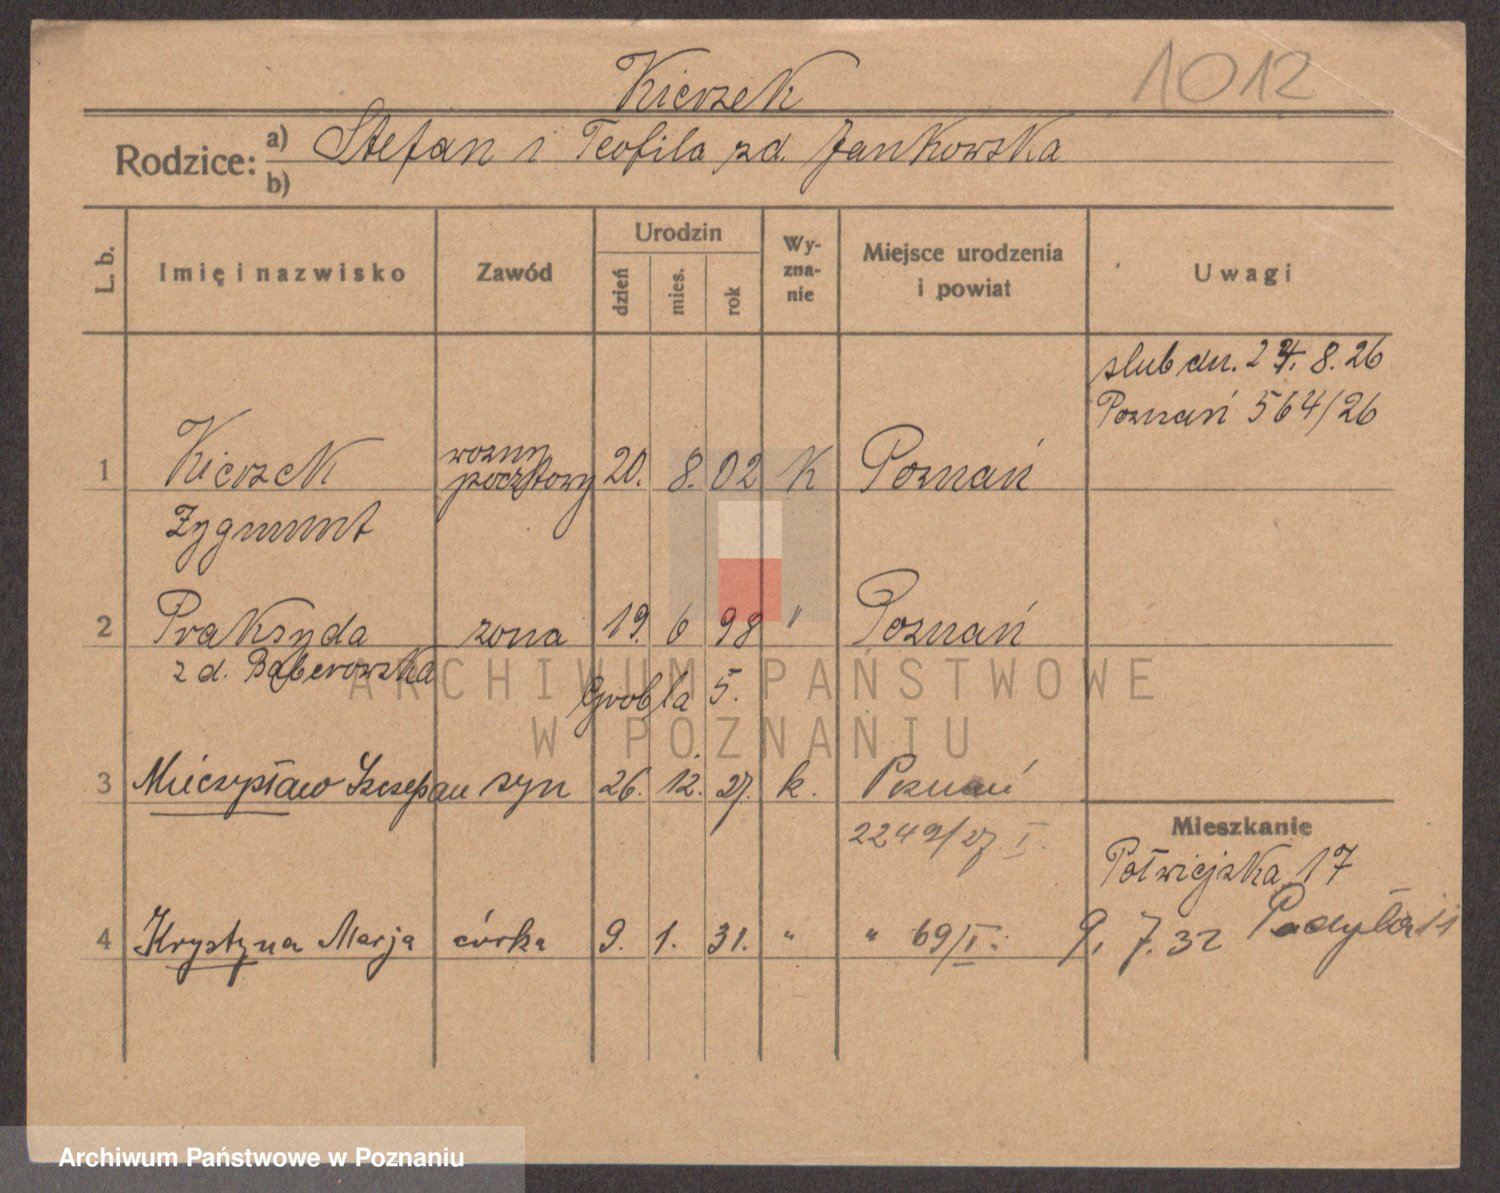 Kierzek
1012
Rodzice: a) Stefan i Teofila zd. Jankowska
b)
L. b. Imię i nazwisko Zawód Urodzin dzień mies. rok Wy-zna-nie Miejsce urodzenia i powiat Uwagi
slub dn. 24. 8. 26
Poznań 564/26
1 Kierzek woźny pocztowy 20. 8. 02 K Poznań
Zygmunt
2 Praksyda zona 19. 6 98 " Poznań
z d. Bąberowska Grobla 5.
3 Mieczysław Szczepan syn 26. 12. 27. k. Poznań
2249/27 I.
Mieszkanie
Półwiejska 17
4 Krystyna Marja córka 9. 1. 31. " " 69/I. 9. 7. 32 11
ARCHIWUM PAŃSTWOWE
W POZNANIU
Archiwum Państwowe w Poznaniu